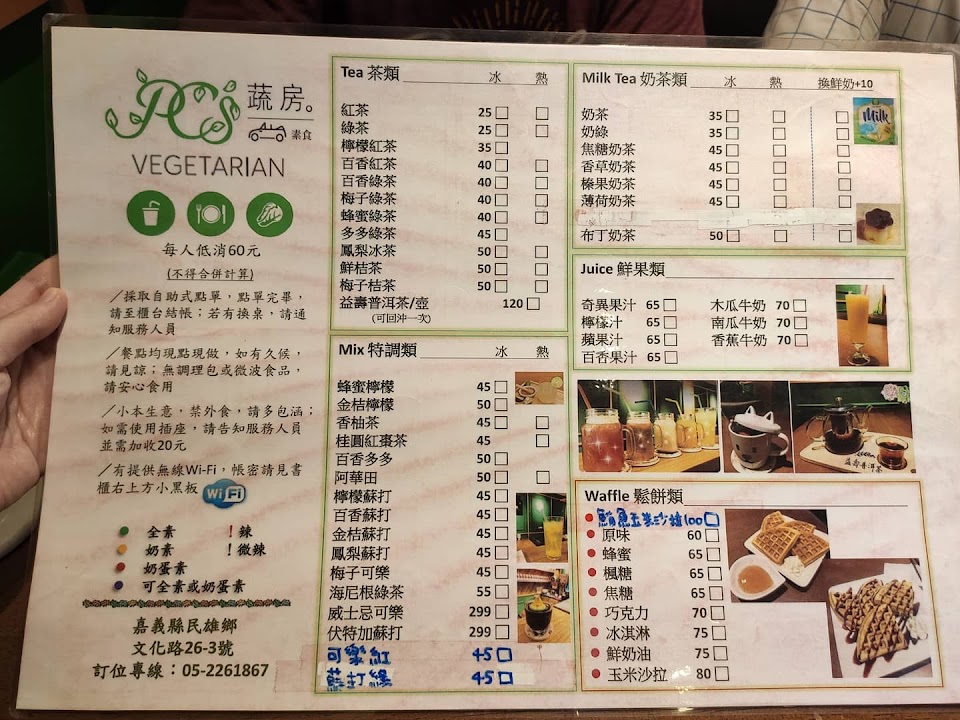 PC's 蔬房。
素食
VEGETARIAN
每人低消60元
(不得合併計算)
／採取自助式點單，點單完畢，
請至櫃台結帳；若有換桌，請通
知服務人員
／餐點均現點現做，如有久候，
請見諒；無調理包或微波食品，
請安心食用
／小本生意，禁外食，請多包涵；
如需使用插座，請告知服務人員
並需加收20元
／有提供無線Wi-Fi，帳密請見書
櫃右上方小黑板 WiFi
全素 ！辣
奶素 ！微辣
奶蛋素
可全素或奶蛋素
嘉義縣民雄鄉
文化路26-3號
訂位專線：05-2261867
Tea 茶類 冰 熱
紅茶 25
綠茶 25
檸檬紅茶 35
百香紅茶 40
百香綠茶 40
梅子綠茶 40
蜂蜜綠茶 40
多多綠茶 45
鳳梨冰茶 50
鮮桔茶 50
梅子桔茶 50
益壽普洱茶/壺 120
(可回沖一次)
Mix 特調類 冰 熱
蜂蜜檸檬 45
金桔檸檬 50
香柚茶 45
桂圓紅棗茶 45
百香多多 50
阿華田 50
檸檬蘇打 45
百香蘇打 45
金桔蘇打 45
鳳梨蘇打 45
梅子可樂 45
海尼根綠茶 55
威士忌可樂 299
伏特加蘇打 299
可樂紅 45
蘇打綠 45
Milk Tea 奶茶類 冰 熱 換鮮奶+10
奶茶 35
奶綠 35
焦糖奶茶 45
香草奶茶 45
榛果奶茶 45
薄荷奶茶 45
布丁奶茶 50
Milk
Juice 鮮果類
奇異果汁 65 木瓜牛奶 70
檸檬汁 65 南瓜牛奶 70
蘋果汁 65 香蕉牛奶 70
百香果汁 65
益壽普洱茶
Waffle 鬆餅類
鮪魚玉米沙拉 100
原味 60
蜂蜜 65
楓糖 65
焦糖 65
巧克力 70
冰淇淋 75
鮮奶油 75
玉米沙拉 80